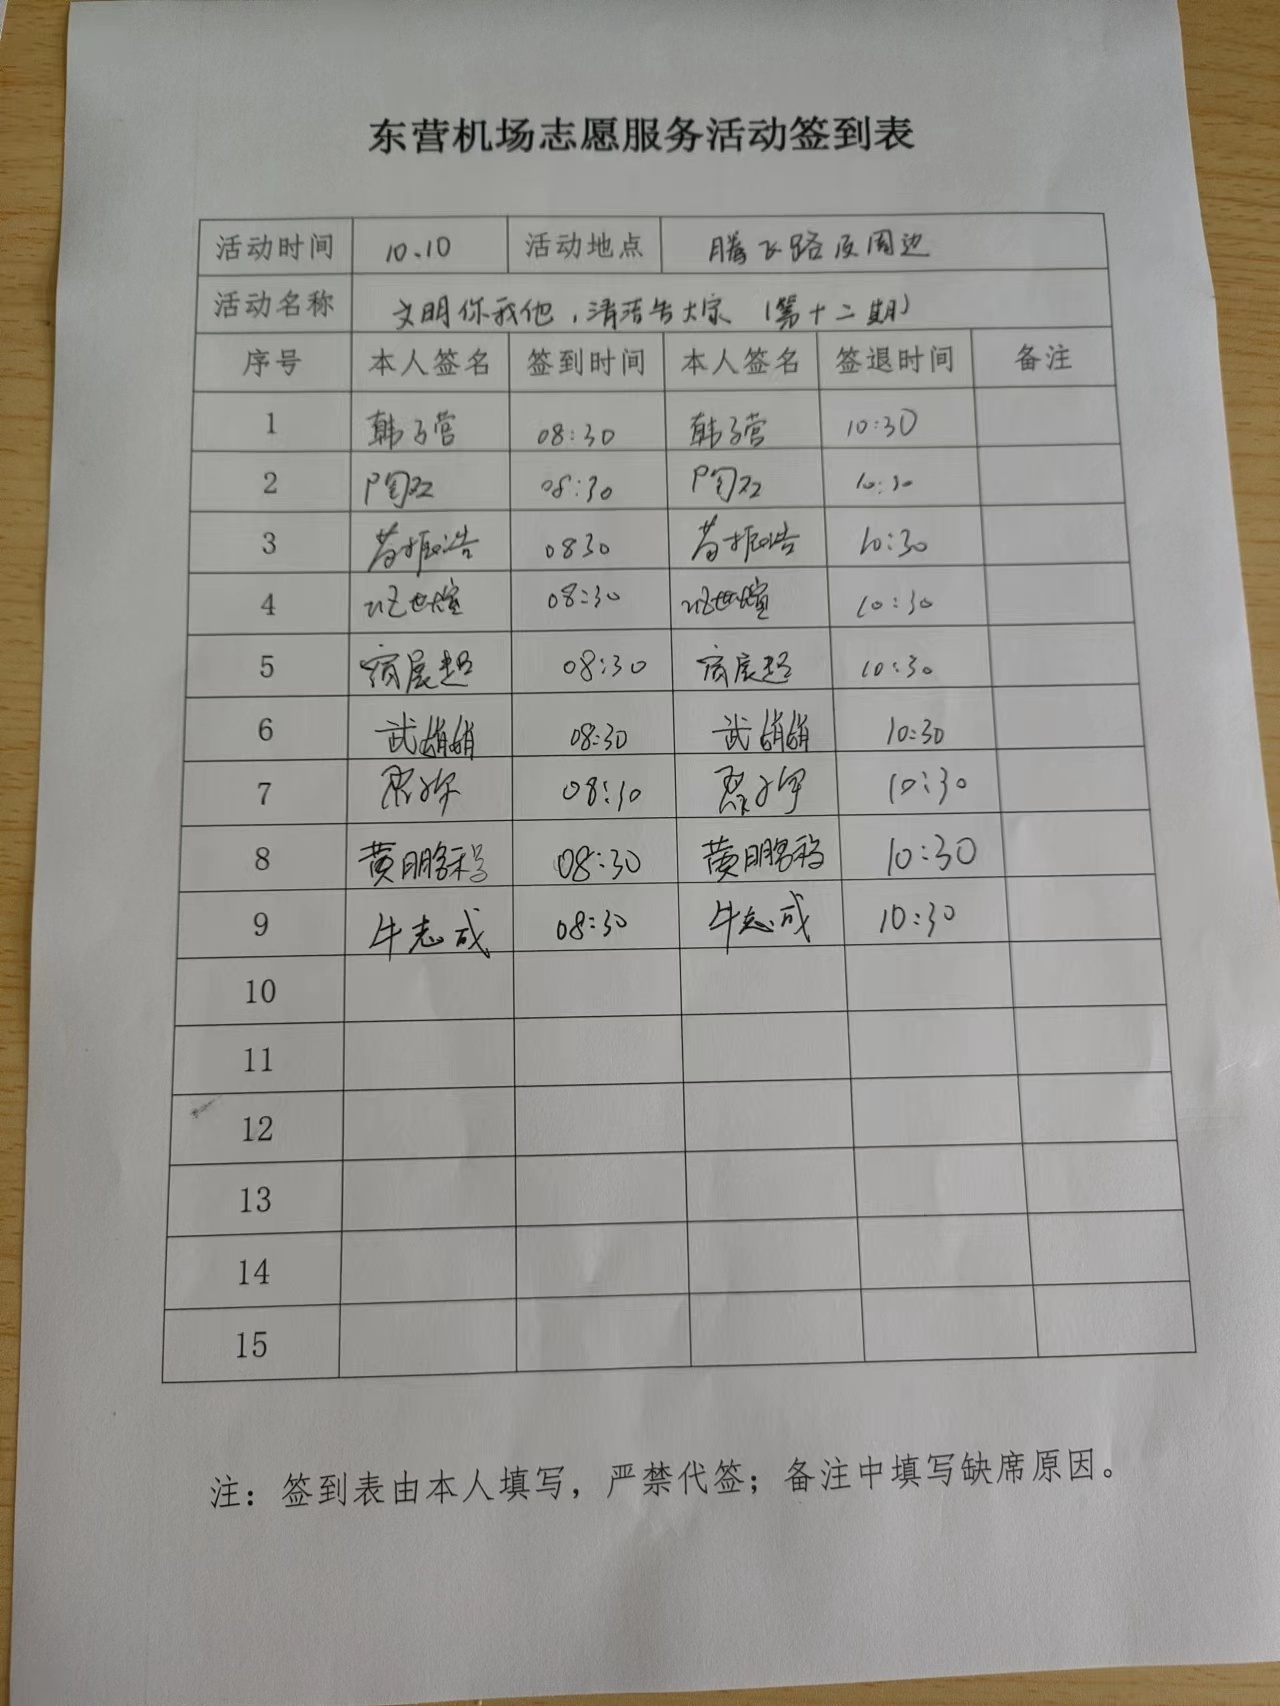 东营机场志愿服务活动签到表
活动时间 10.10 活动地点 腾飞路及周边
活动名称 文明你我他，清洁靠大家（第十二期）
序号 本人签名 签到时间 本人签名 签退时间 备注
1 韩子营 08:30 韩子营 10:30
2 08:30 10:30
3 0830 10:30
4 08:30 10:30
5 08:30 10:30
6 武娟娟 08:30 武娟娟 10:30
7 08:30 10:30
8 08:30 10:30
9 牛志成 08:30 牛志成 10:30
10
11
12
13
14
15
注：签到表由本人填写，严禁代签；备注中填写缺席原因。